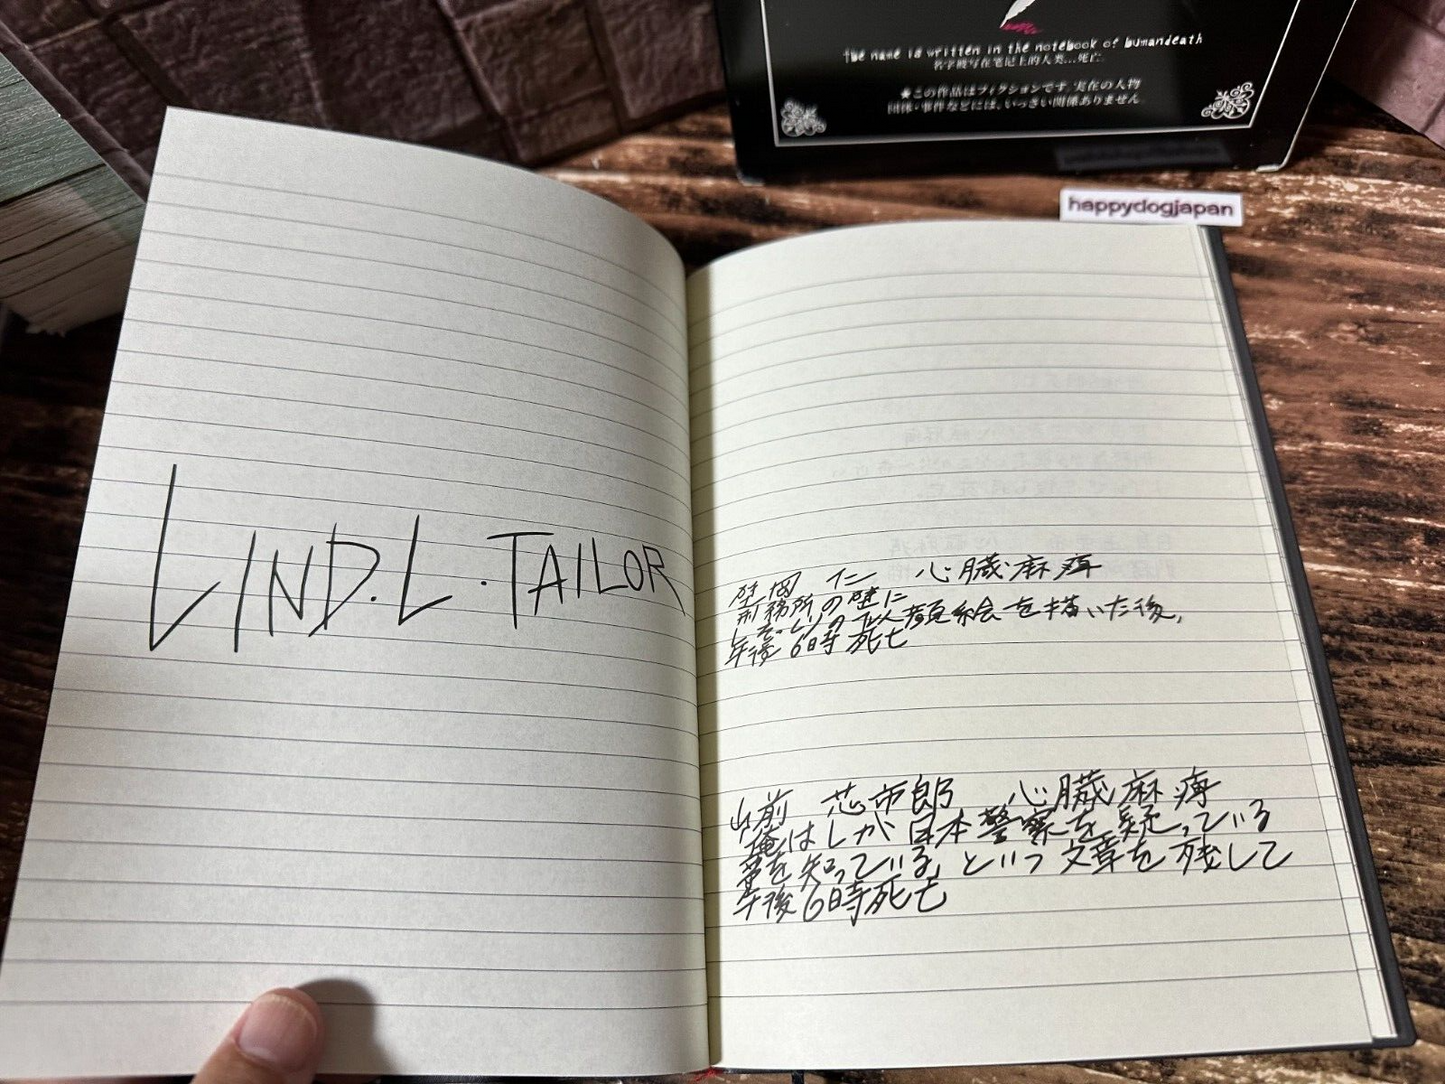 the name is written in the notebook of humandeath
名字被写在笔记上的人类…死亡
★この作品はフィクションです。実在の人物
団体・事件などには、いっさい関係ありません
happydogjapan
LIND.L.TAILOR
仁 心臓麻痺
刑務所の壁に
しの似顔絵を描いた後、
午後6時死亡
山前 心臓麻痺
俺はLが日本警察を疑っている
事を知っている、という文章を残して
午後6時死亡